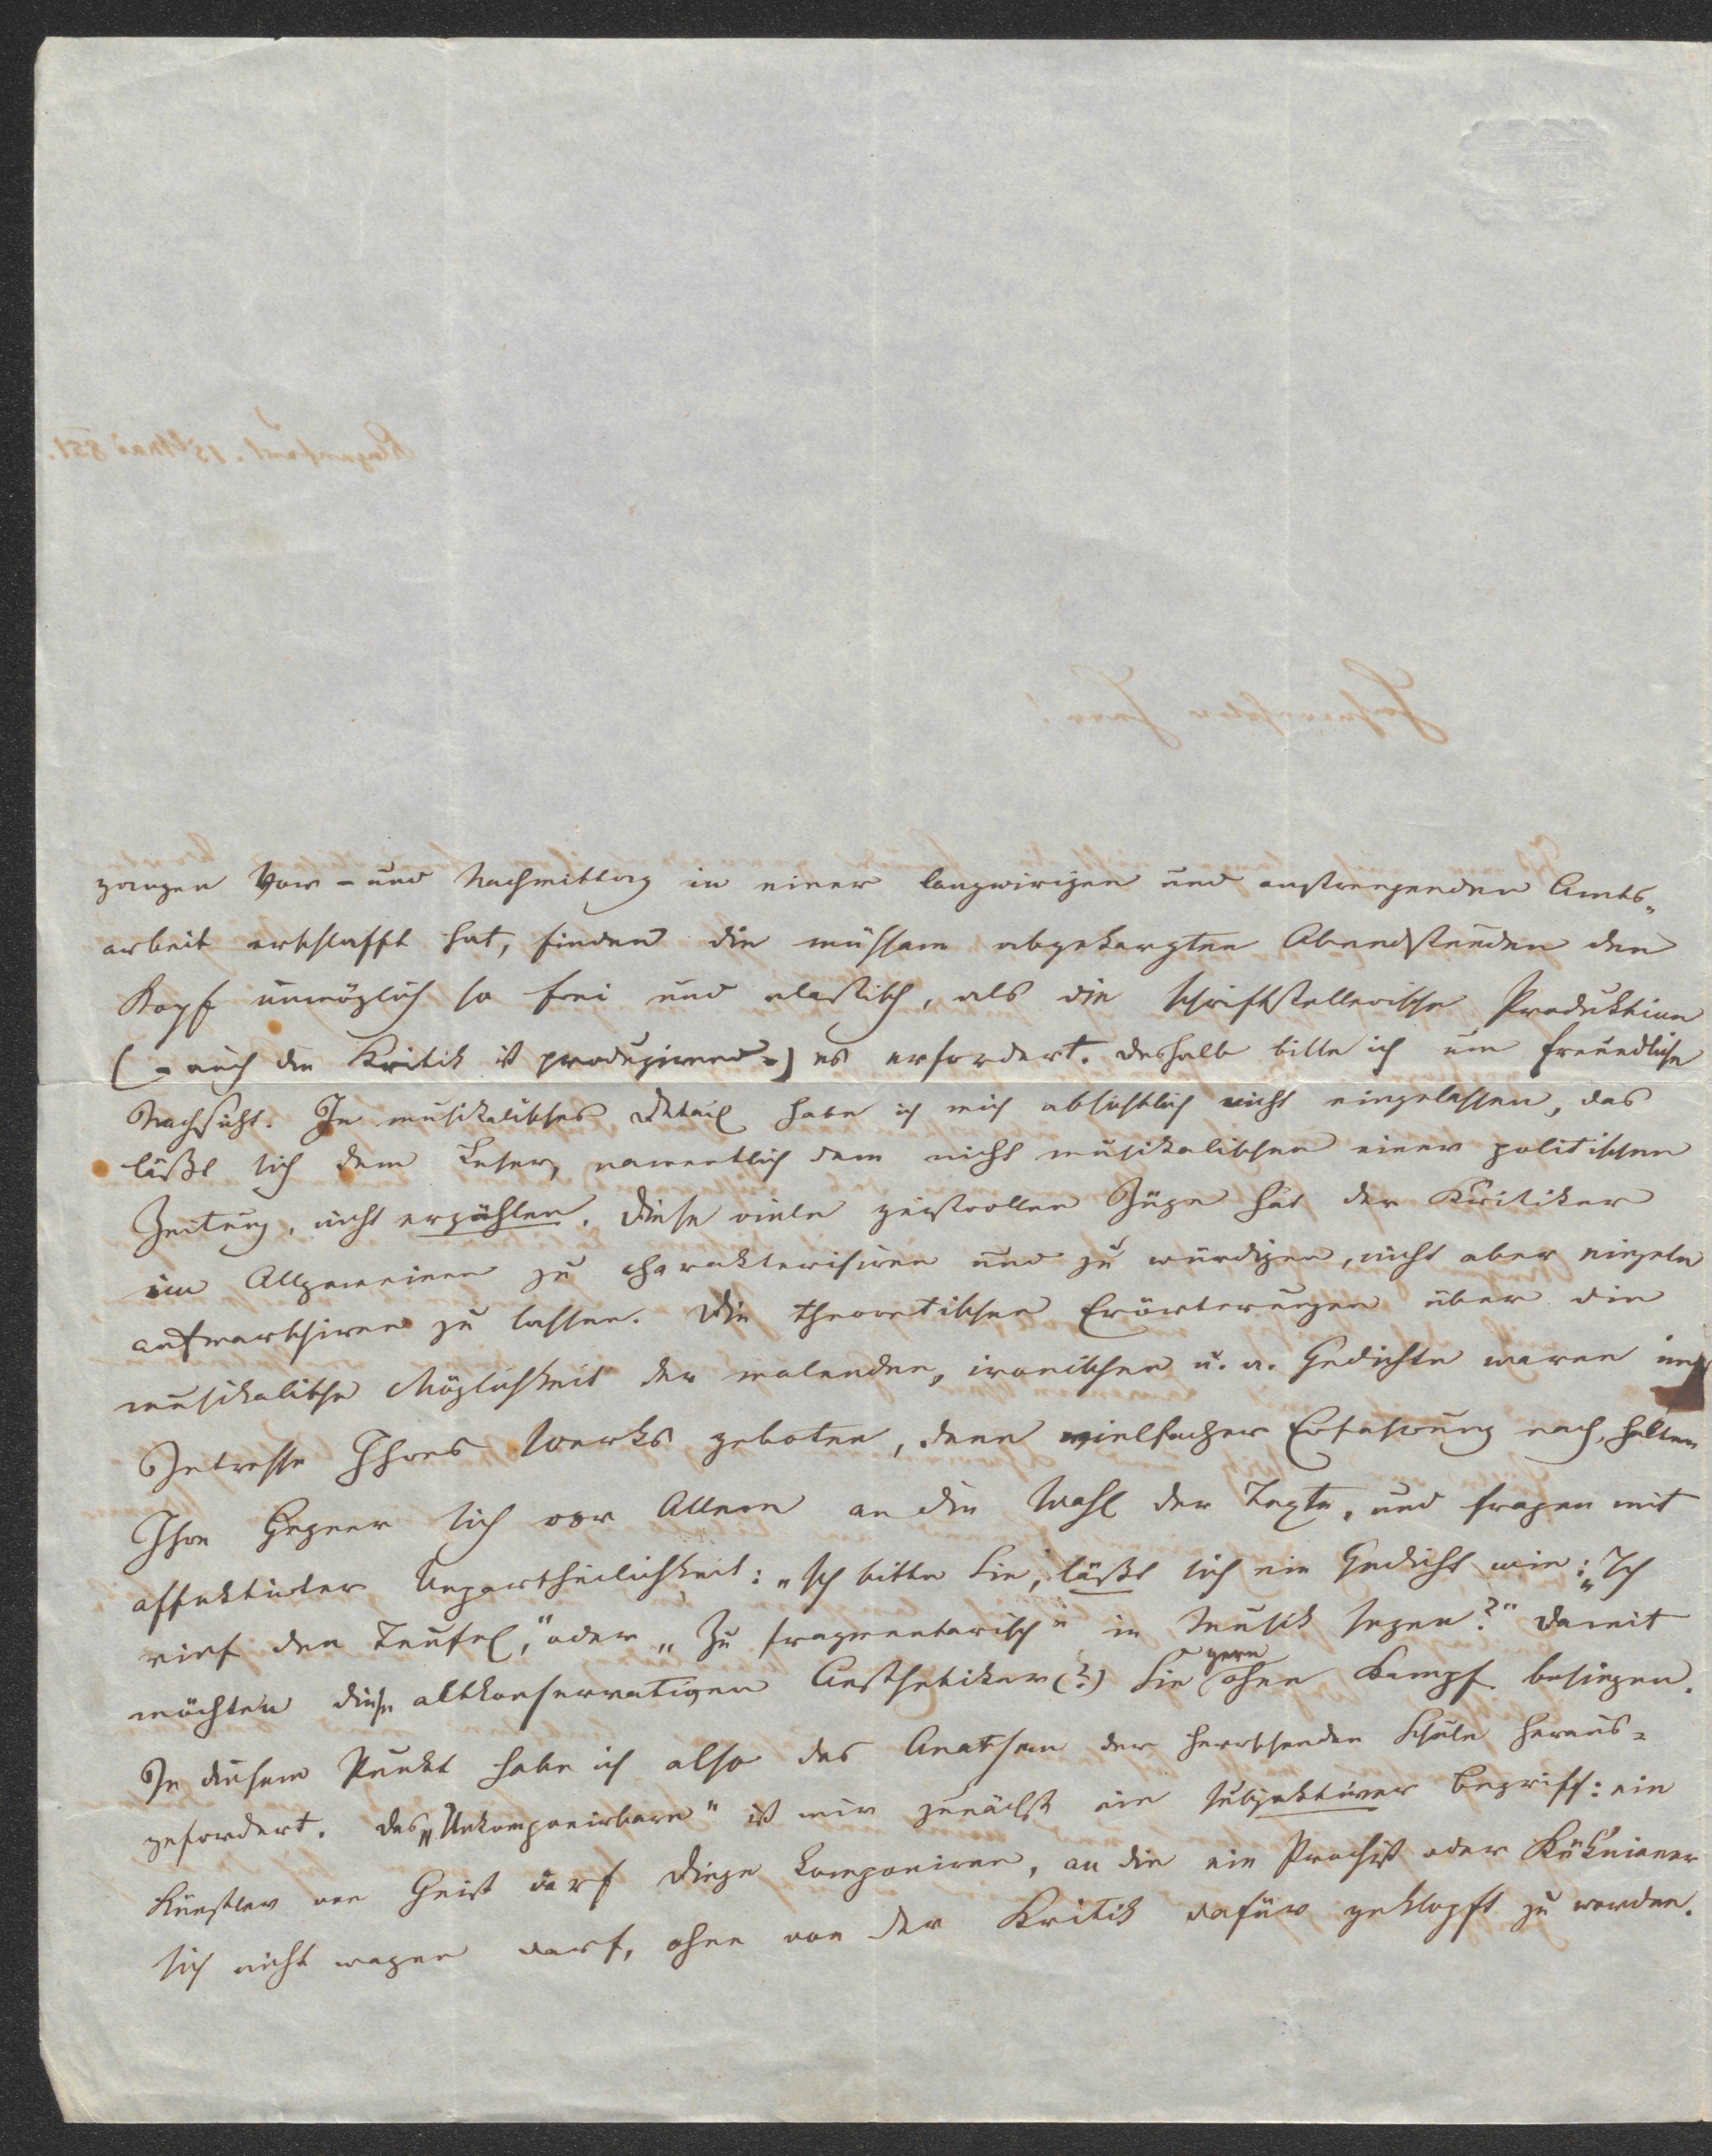 ganzen Vor- und Nachmittag in einer langwierigen und anstrengenden Amts-
arbeit erschlafft hat, findet die mühsam abgekargten Abendstunden den
Kopf unmöglich so frei und elastisch, als die schriftstellerische Produktion
(- auch die Kritik ist produzirend -) es erfordert. Deshalb bitte ich um freundliche
Nachsicht. In musikalisches Detail habe ich mich absichtlich nicht eingelassen, das
läßt sich dem Leser, namentlich dem nicht musikalischen einer politischen
Zeitung, nicht erzählen. Diese viele geistvollen Züge hat der Kritiker
im Allgemeinen zu charakterisiren und zu würdigen, nicht aber einzeln
aufmarschiren zu lassen. Die theoretischen Erörterungen über die
musikalische Möglichkeit der malenden, ironischen u. a. Gedichte waren im
Intresse Ihres Werks geboten, denn vielfacher Erfahrung nach, halten
Ihre Gegner sich vor Allem an die Wahl der Texte, und fragen mit
affektirter Unpartheilichkeit: „Ich bitte Sie, läßt sich ein Gedicht wie: „Ich
rief den Teufel," oder „Zu fragmentarisch" in Musik sezen?" Damit
möchten diese altkonservativen Aesthetiker (?) Sie gern ohne Kampf besiegen.
In diesem Punkt habe ich also das Anathem der herrschenden Schule heraus-
gefordert. Das „Unkomponirbare" ist mir zunächst ein subjektiver Begriff: ein
Künstler von Geist darf Dinge komponiren, an die ein Proch oder Kükeniener
sich nicht wagen darf, ohne von der Kritik dafür geklopft zu werden.